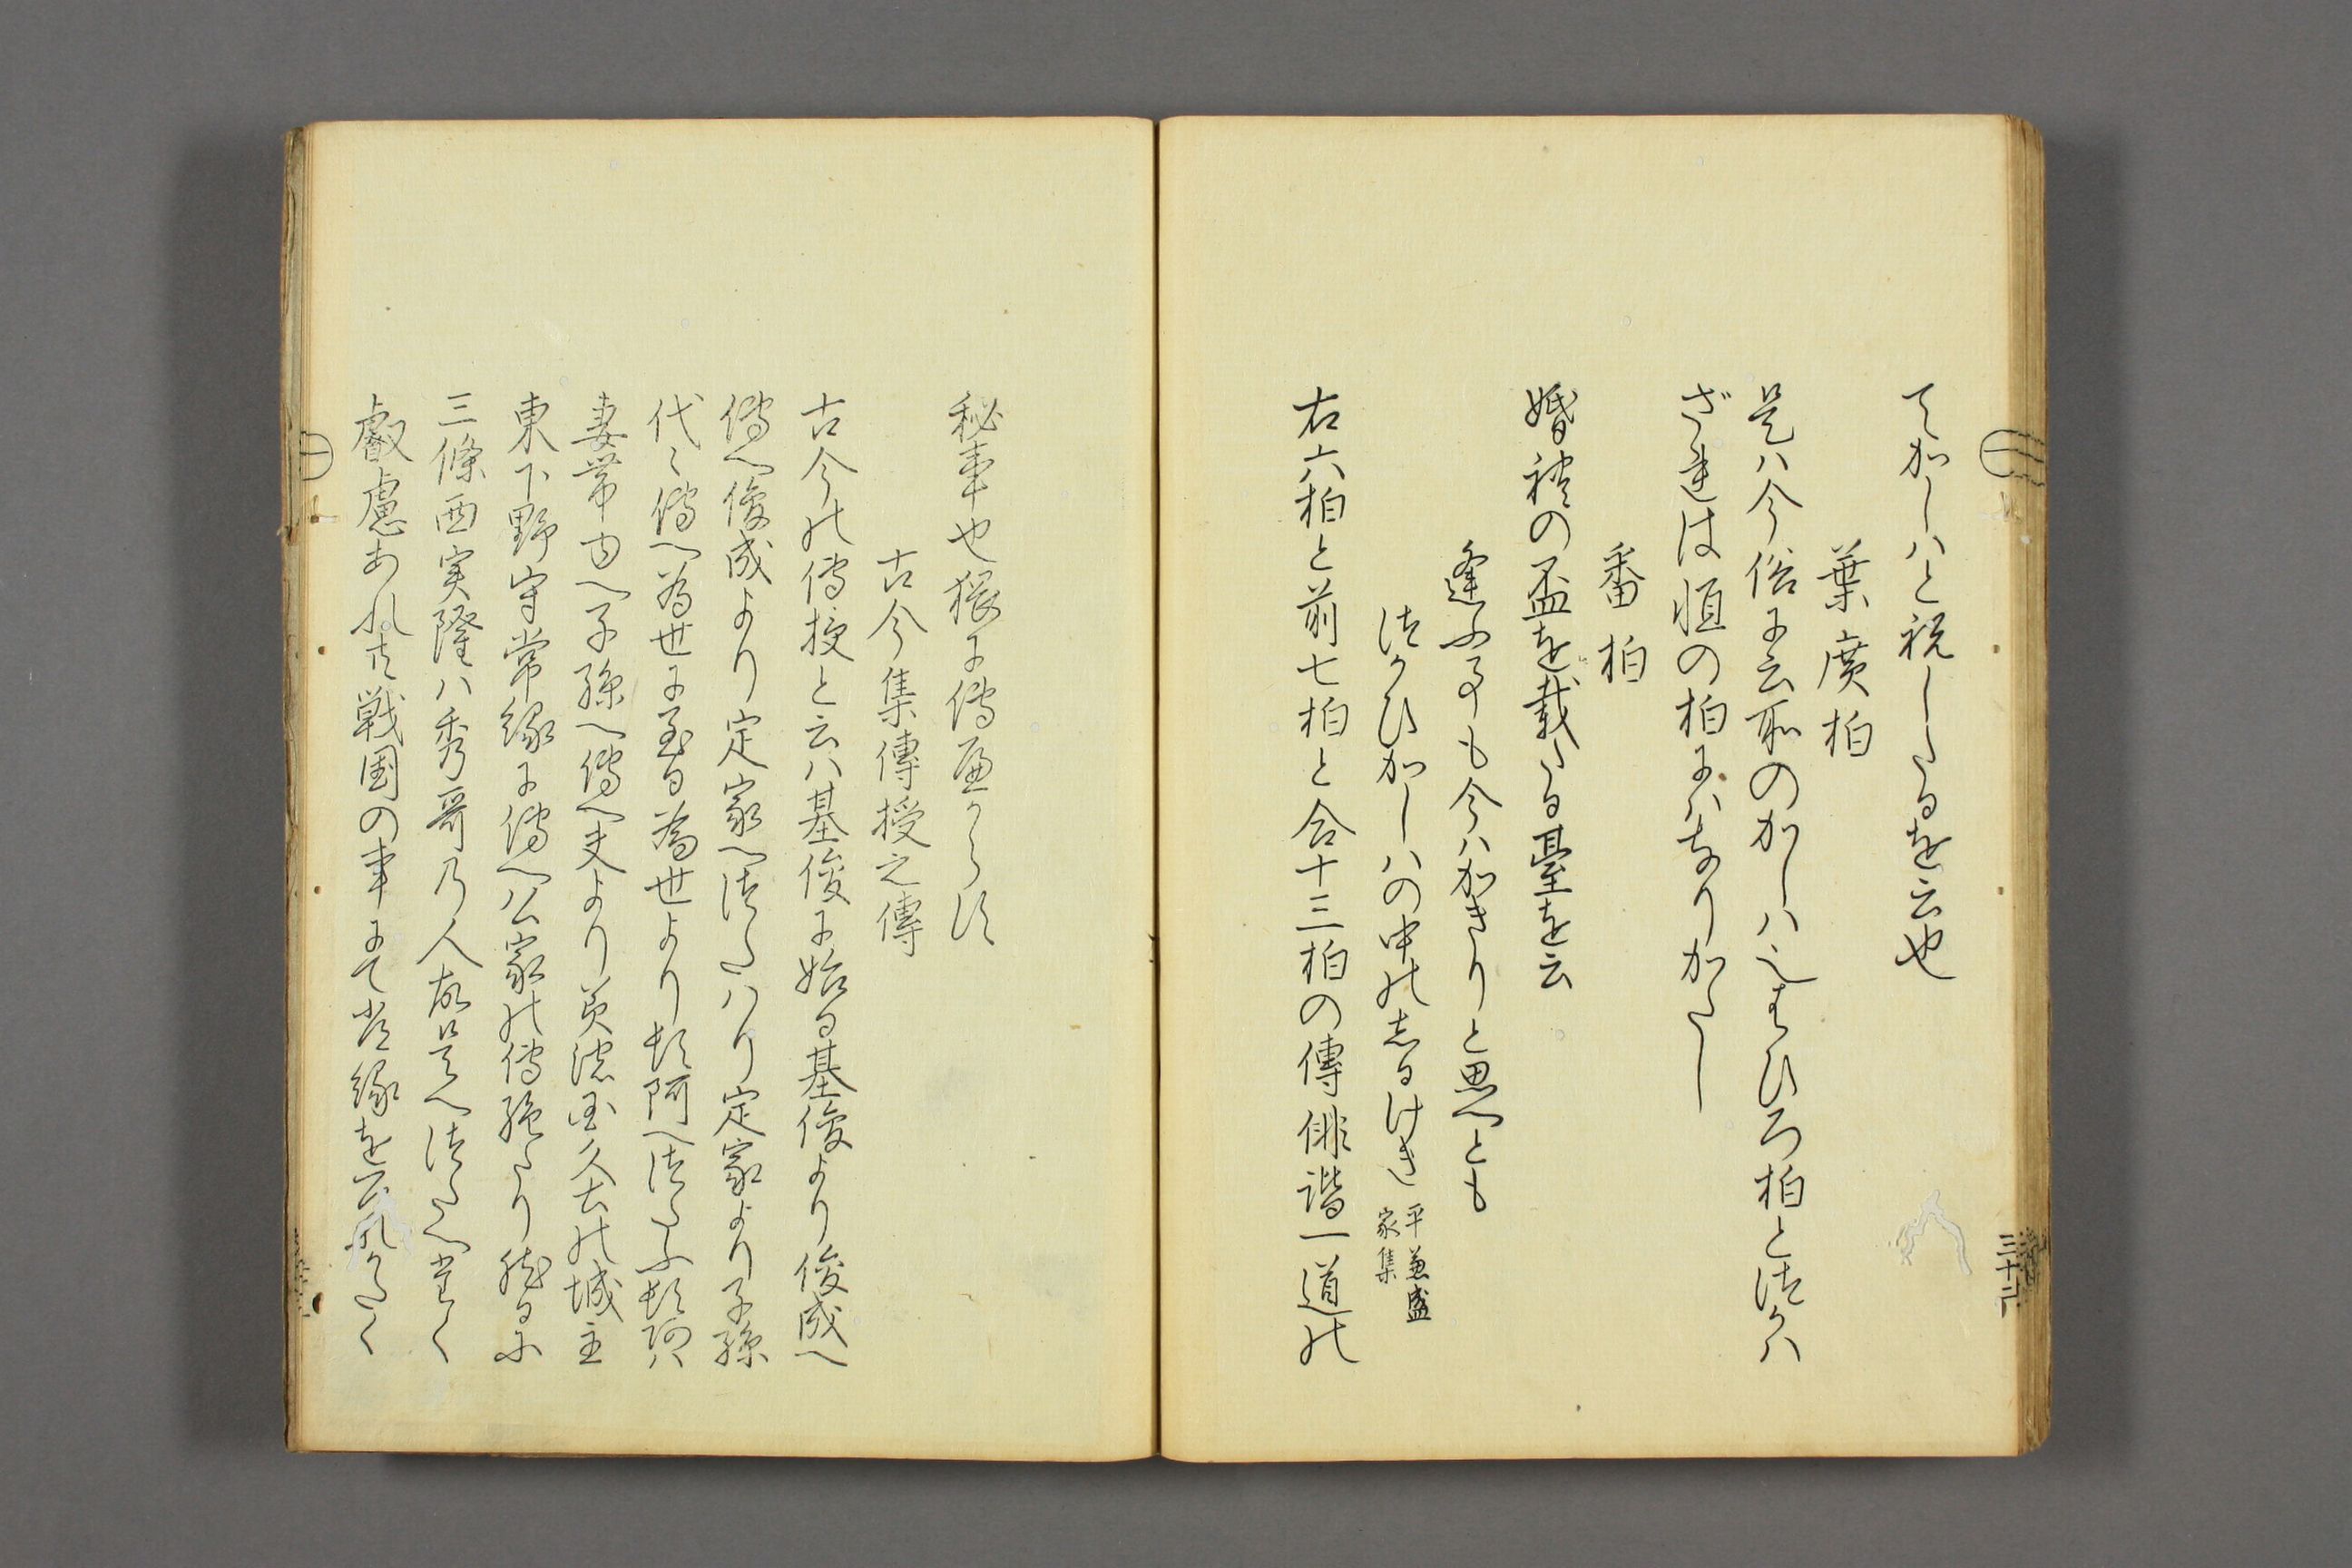 てかしハと祝したるを云也
葉廣柏
是ハ今俗に云耶のかしハ也はひろ柏とつかハ
ざれは恒の柏にハなりかたし
番柏
婚禮の盃を載たる臺を云
逢ふ事も今ハかきりと思へとも
つかひかしハの中のしるけき
平兼盛
家集
右六柏と前七柏と合十三柏の傳俳諧一道の
三十二
秘事也猥に傳ふへからす
古今集傳授之傳
古今の傳授と云ハ基俊に始る基俊より俊成へ
傳へ俊成より定家へつたハり定家より子孫
代〻傳へ為世に至る為世より頓阿へつたふ頓阿ハ
妻帯ゆへ子孫へ傳へ夫より美濃国久古の城主
東下野守常縁に傳へ公家の傳絶たり然るに
三條西実隆ハ秀哥乃人故是へつたへ置く
叡慮あれ共戦国の事にて常縁を